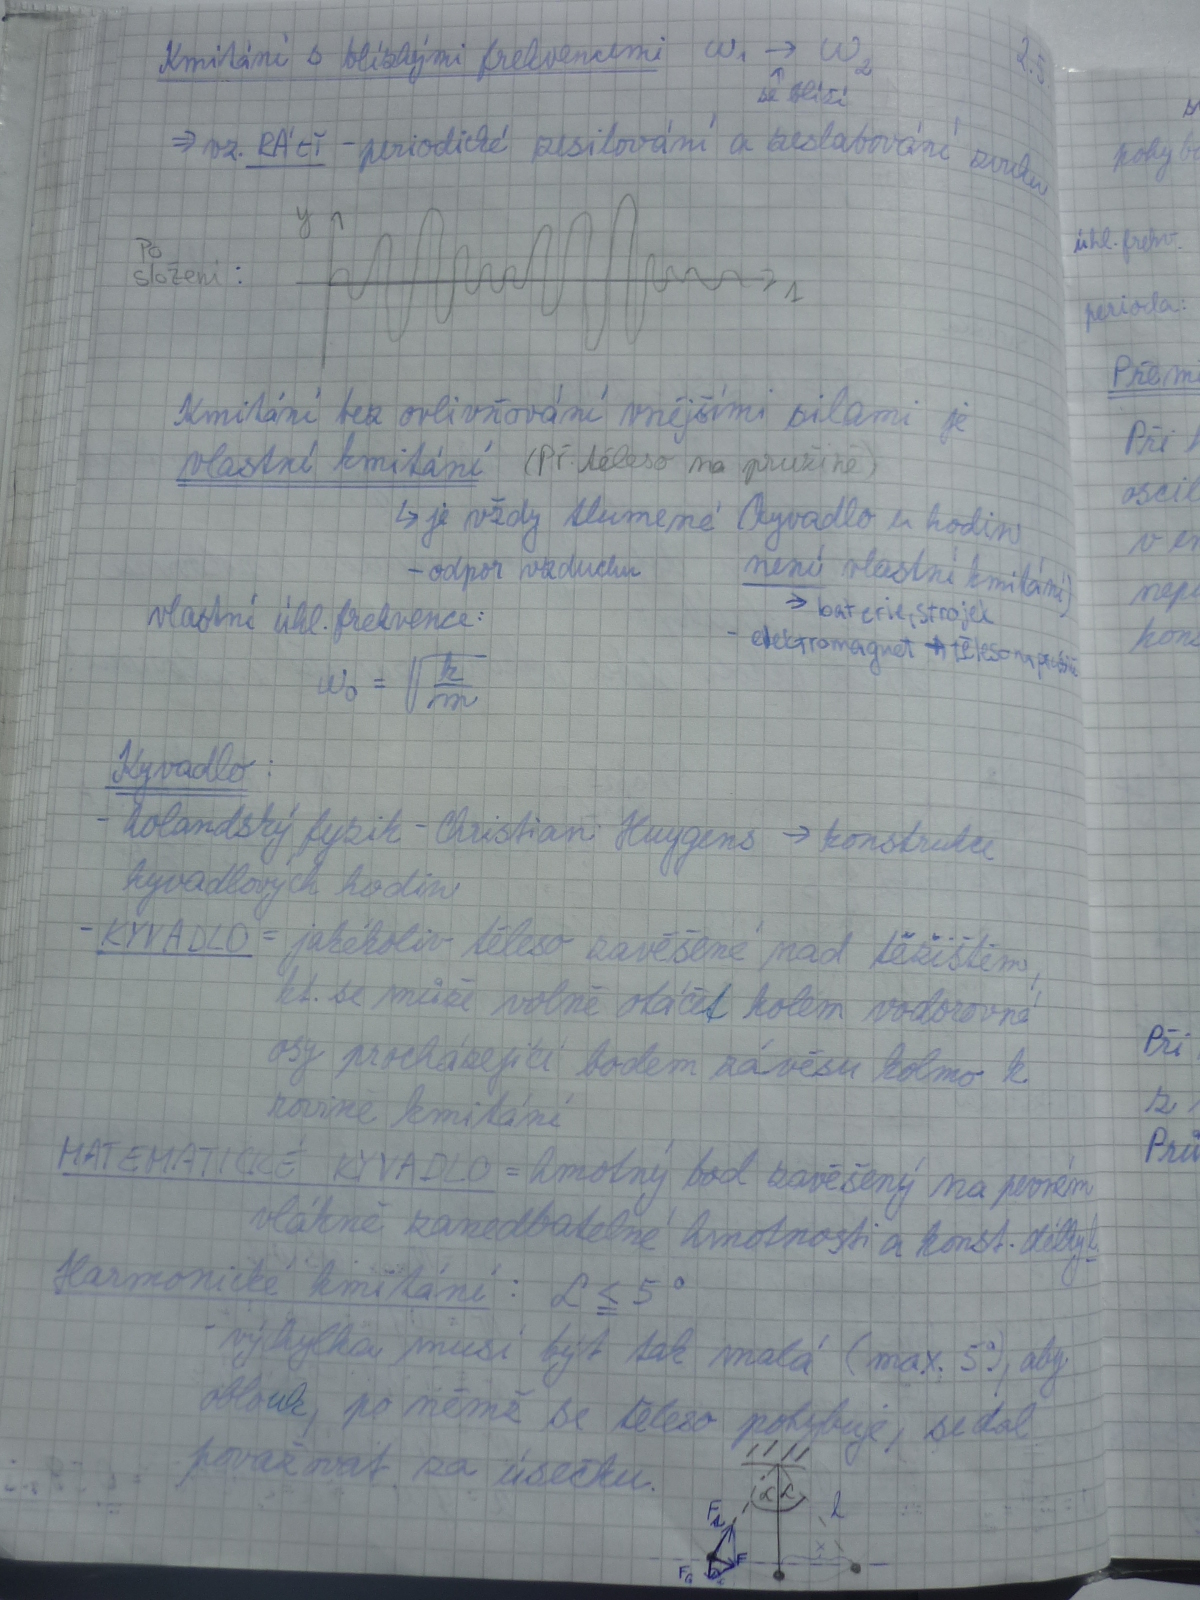 Kmitání s blízkými frekvencemi ω₁ → ω₂
2.5.
↑
se blíží
⇒ vz. RÁZY - periodické zesilování a zeslabování zvuku
y
Po
složení :
Kmitání bez ovlivňování vnějšími silami je
vlastní kmitání (Př. těleso na pružině)
↳ je vždy tlumené (Kyvadlo u hodin
- odpor vzduchu není vlastní kmitání)
→ baterie, strojek
vlastní úhl. frekvence:
- elektromagnet → těleso na pružině
ω₀ = √k/m
Kyvadlo:
- holandský fyzik - Christian Huygens → konstrukce
kyvadlových hodin
- KYVADLO = jakékoliv těleso zavěšené nad těžištěm,
kt. se může volně otáčet kolem vodorovné
osy procházející bodem závěsu kolmo k
rovině kmitání
MATEMATICKÉ KYVADLO = hmotný bod zavěšený na pevném
vlákně zanedbatelné hmotnosti a konst. délky l
Harmonické kmitání : α ≤ 5°
- výchylka musí být tak malá (max. 5°), aby
oblouk, po němž se těleso pohybuje, se dal
považovat za úsečku.
α α
l
x
F
F_G
úhl. frekv.
perioda:
Při
oscil
v en
Při